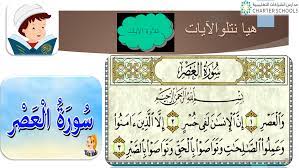 هيا نتلو الآيات
تلاوة الآيات
مدارس الشراكات التعليمية
CHARTER SCHOOLS
سُورَةُ الْعَصْرِ
بِسْمِ اللَّهِ الرَّحْمَٰنِ الرَّحِيمِ
وَالْعَصْرِ ١ إِنَّ الْإِنسَانَ لَفِي خُسْرٍ ٢ إِلَّا الَّذِينَ ءَامَنُوا
وَعَمِلُوا الصَّالِحَاتِ وَتَوَاصَوْا بِالْحَقِّ وَتَوَاصَوْا بِالصَّبْرِ ٣
سُورَةُ الْعَصْرِ